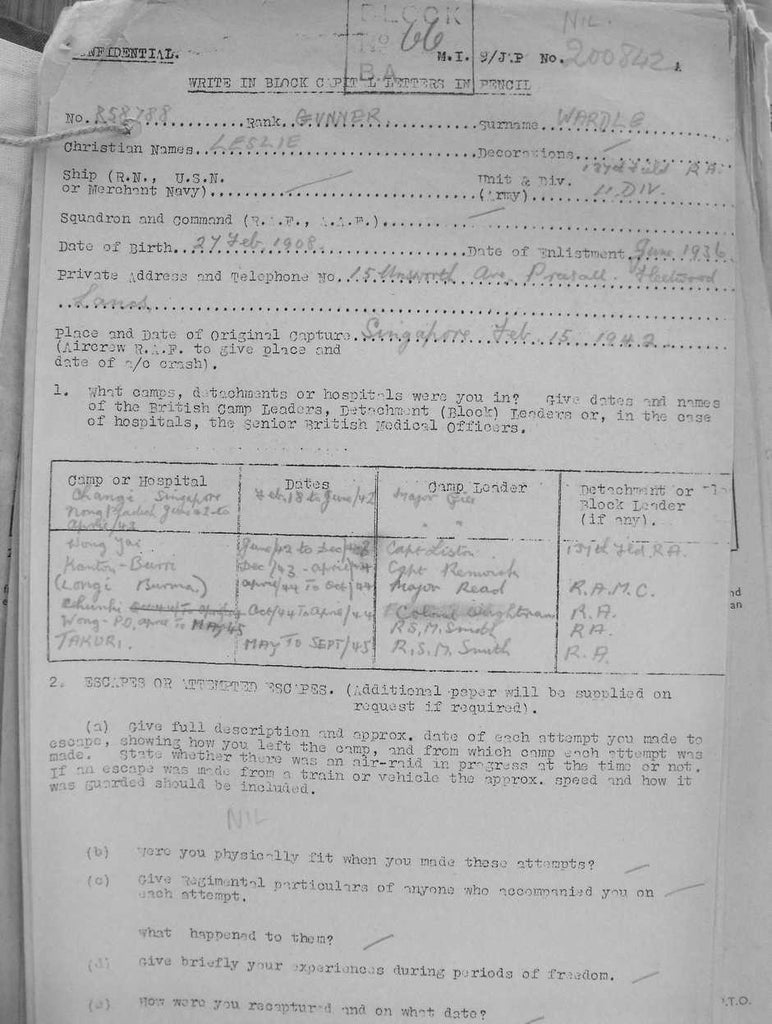 BLOCK
NIL.
No 66
BA
CONFIDENTIAL. M.I. 9/JAP No. 200842
WRITE IN BLOCK CAPITAL LETTERS IN PENCIL
No. 858788 Rank. GUNNER Surname. WARDLE
Christian Names. LESLIE Decorations.
137th Field RA.
Ship (R.N., U.S.N. Unit & Div.
or Merchant Navy) (Army) 11 DIV.
Squadron and Command (R.A.F., A.A.F.)
Date of Birth. 27 Feb. 1908. Date of Enlistment June 1936
Private Address and Telephone No. 15 Unsworth Ave, Preesall. Fleetwood
Lancs
Place and Date of Original Capture. Singapore Feb. 15, 1942
(Aircrew R.A.F. to give place and
date of a/c crash).
1. What camps, detachments or hospitals were you in? Give dates and names
of the British Camp Leaders, Detachment (Block) Leaders or, in the case
of hospitals, the Senior British Medical Officers.
Camp or Hospital Dates Camp Leader Detachment or
Changi Singapore Feb. 18 to June/42 Major Block Leader
June 42 to (if any).
April/43
June/42 to Dec/43 Capt 137th Fld. R.A.
Dec/43 - April/44 Capt
April/44 To Oct/44 Major Read R.A.M.C.
Oct/44 To April/44 R.A.
April To MAY 45 R.S.M. Smith RA.
MAY To SEPT/45 R.S.M. Smith R.A.
2. ESCAPES OR ATTEMPTED ESCAPES. (Additional paper will be supplied on
request if required).
(a) Give full description and approx. date of each attempt you made to
escape, showing how you left the camp, and from which camp each attempt was
made. State whether there was an air-raid in progress at the time or not.
If an escape was made from a train or vehicle the approx. speed and how it
was guarded should be included.
NIL
(b) Were you physically fit when you made these attempts?
(c) Give Regimental particulars of anyone who accompanied you on
each attempt.
What happened to them?
(d) Give briefly your experiences during periods of freedom.
(e) How were you recaptured and on what date?
nd
an
P.T.O.